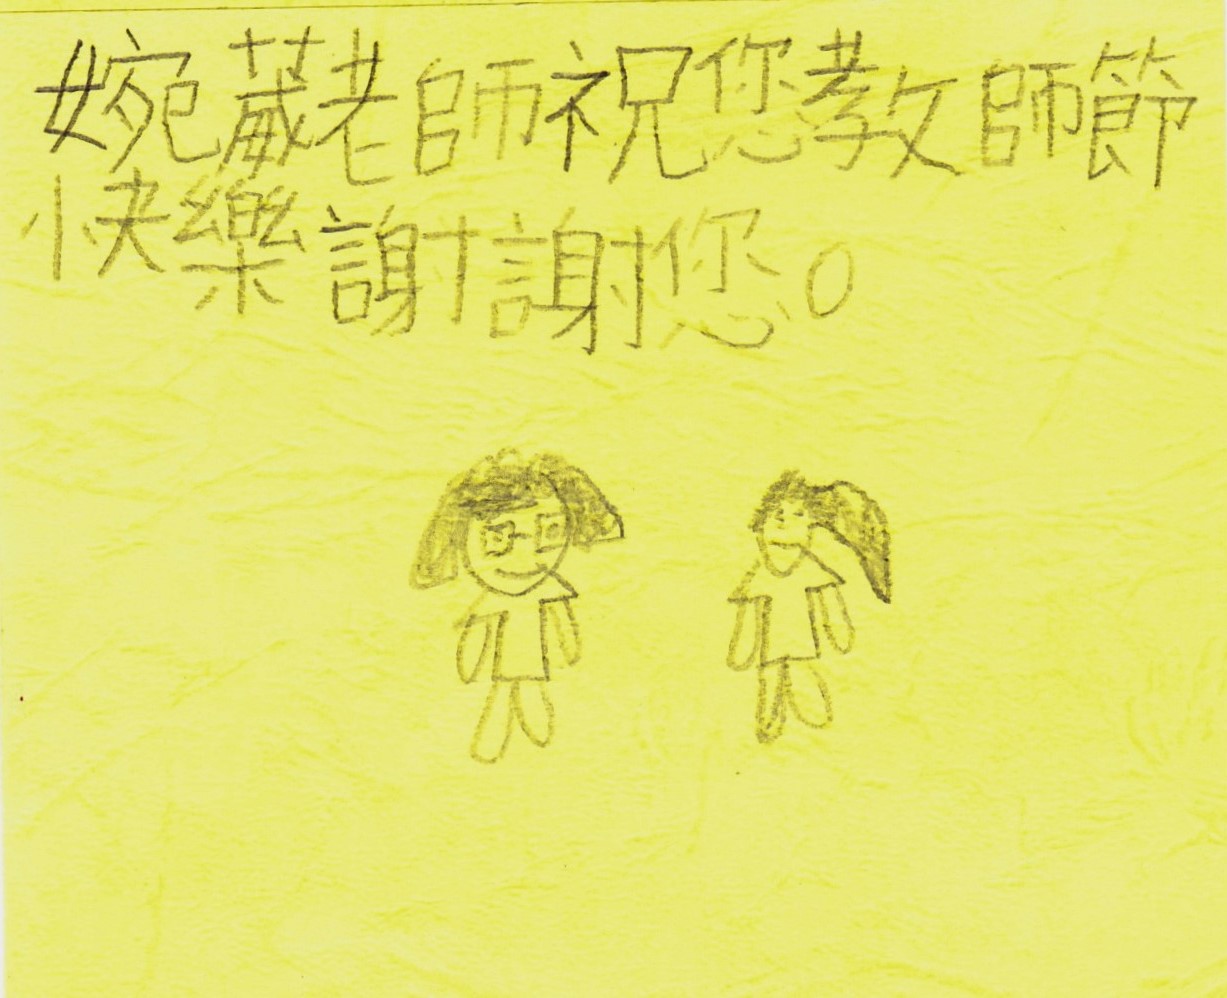 婉葳老師祝您教師節
快樂謝謝您。